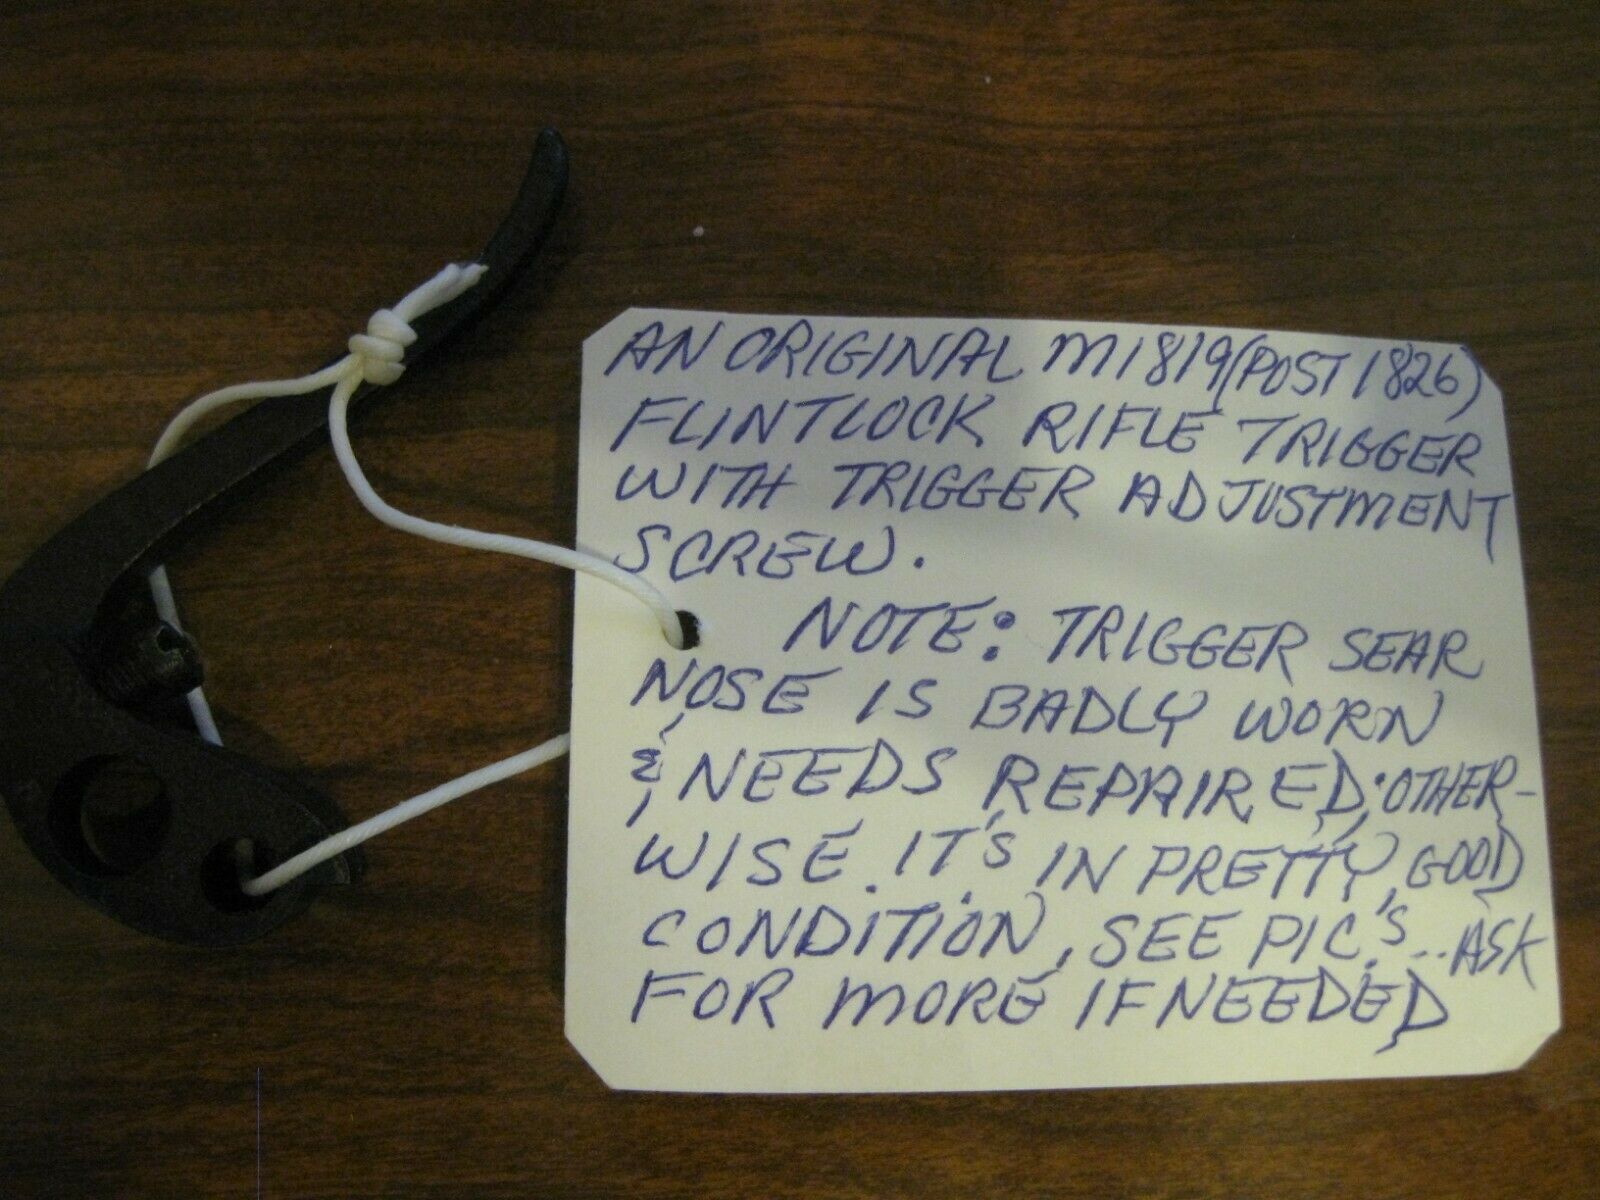 AN ORIGINAL M1819 (POST 1826)
FLINTLOCK RIFLE TRIGGER
WITH TRIGGER ADJUSTMENT
SCREW.
NOTE: TRIGGER SEAR
NOSE IS BADLY WORN
& NEEDS REPAIRED; OTHER-
WISE IT'S IN PRETTY GOOD
CONDITION, SEE PIC'S... ASK
FOR MORE IF NEEDED